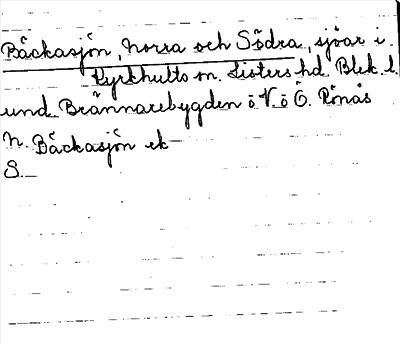 Bäckasjön, Norra och Södra, sjöar i
Kyrkhults sn. Listers hd. Blek. l.
und. Brännarebygden ö V ö Ö. Rönås
N. Bäckasjön ek
S. —